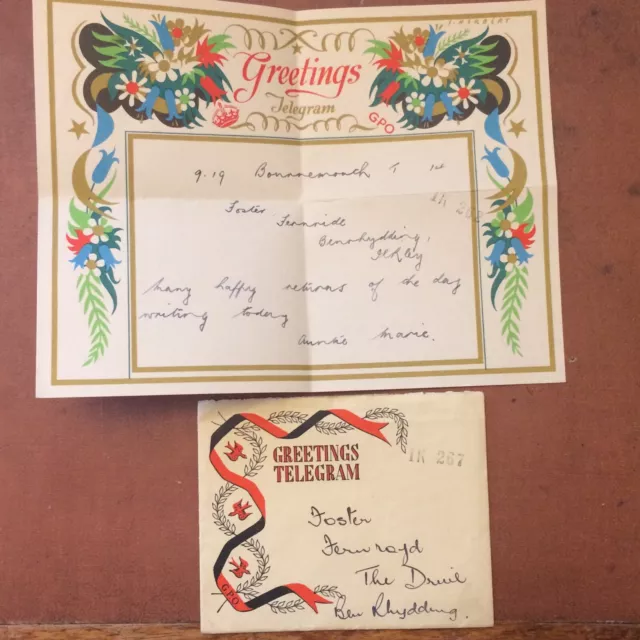 J. HERBERT
Greetings
Telegram
GPO
9.19 Bournemouth T 1st
Foster Fernride
Benrhydding,
Ilkley
Many happy returns of the day
writing today
Auntie Marie.
GREETINGS
TELEGRAM
IK 267
Foster
Fernroyd
The Drive
Ben Rhydding.
GPO